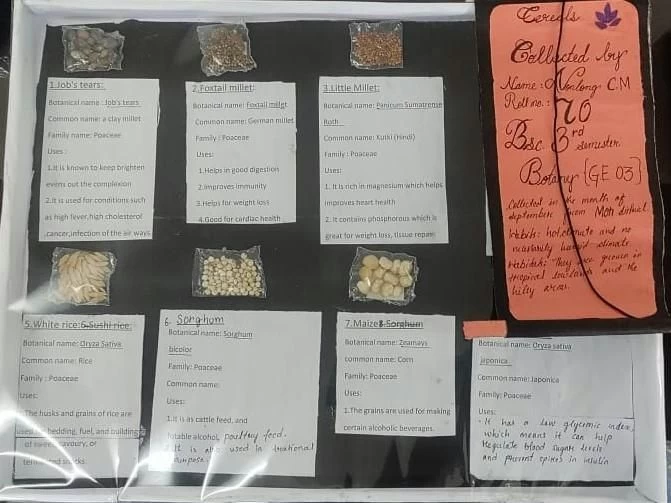 Cereals
Collected by
Name: C.M
Roll no.: 70
Bsc. 3rd semester
Botany {GE 03}
Collected in the month of
september from Mon district.
Habits: hot climate and no
climate.
Habitats: They are grown in
tropical and the
hilly areas.
1.Job's tears:
Botanical name: Job's tears
Common name: a clay millet
Family name: Poaceae
Uses:
1.It is known to keep brighten
evens out the complexion
2.It is used for conditions such
as high fever,high cholesterol
,cancer,infection of the air ways
2.Foxtail millet:
Botanical name: Foxtail millet
Common name: German millet
Family: Poaceae
Uses:
1.Helps in good digestion
2.Improves immunity
3.Helps for weight loss
4.Good for cardiac health
3.Little Millet:
Botanical name: Panicum Sumatrense
Roth
Common name: Kutki (Hindi)
Family: Poaceae
Uses:
1. It is rich in magnesium which helps
improves heart health
2. It contains phosphorous which is
great for weight loss, tissue repair
5.White rice:6.Sushi rice:
Botanical name: Oryza Sativa
Common name: Rice
Family: Poaceae
Uses:
The husks and grains of rice are
used bedding, fuel, and building
of sweet, savoury, or
fermented snacks.
6. Sorghum
Botanical name: Sorghum
bicolor
Family: Poaceae
Common name:
Uses:
1.It is as cattle feed, and
potable alcohol, poultry feed.
It is also used in
purpose.
7.Maize8.Sorghum
Botanical name: Zeamays
common name: Corn
Family: Poaceae
Uses:
1.The grains are used for making
certain alcoholic beverages.
Botanical name: Oryza sativa
japonica
Common name: Japonica
Family: Poaceae
Uses:
- It has a low glycemic index,
which means it can help
regulate blood sugar levels
and prevent spikes in insulin